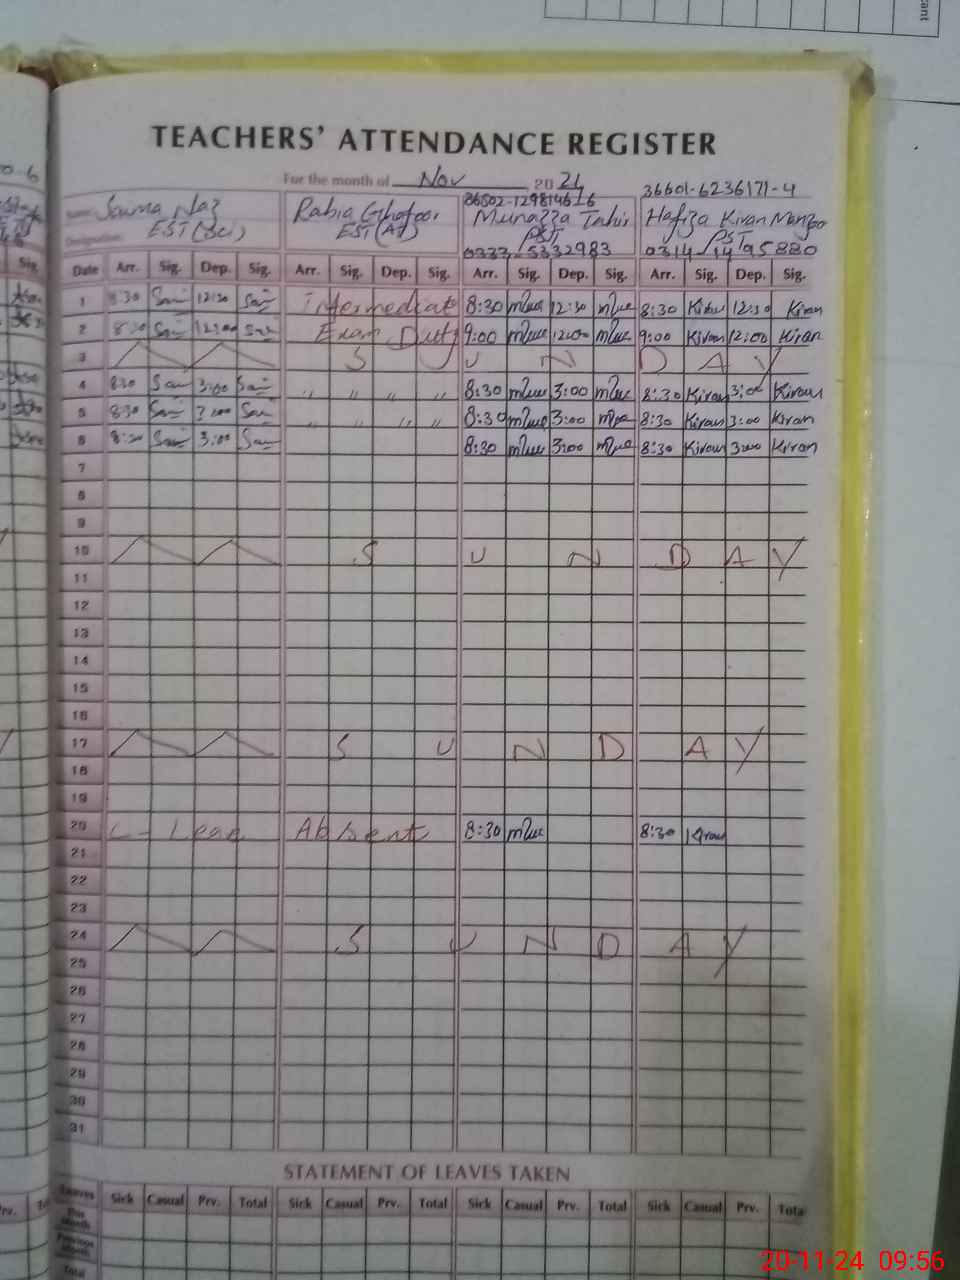 TEACHERS' ATTENDANCE REGISTER
For the month of Nov, 2024
36502-1298146-6 36601-6236171-4
Name Sauma Naz Rabia Ghafoor Munazza Tahir Hafiza Kiran
Designation EST(Sci) EST(AT) PST PST
0333-5332983 0314-1495880
Date Arr. Sig. Dep. Sig. Arr. Sig. Dep. Sig. Arr. Sig. Dep. Sig. Arr. Sig. Dep. Sig.
1 8:30 12:30 intermediate 8:30 12:30 8:30 Kiran 12:30 Kiran
2 8:30 12:00 Exam Duty 9:00 12:00 9:00 Kiran 12:00 Kiran
3 S U N D A Y
4 8:30 3:00 " " " " 8:30 3:00 8:30 Kiran 3:00 Kiran
5 8:30 3:00 " " " " 8:30 3:00 8:30 Kiran 3:00 Kiran
6 8:30 3:00 8:30 3:00 8:30 Kiran 3:00 Kiran
7
8
9
10 S U N D A Y
11
12
13
14
15
16
17 S U N D A Y
18
19
20 Absent 8:30 8:30 Kiran
21
22
23
24 S U N D A Y
25
26
27
28
29
30
31
STATEMENT OF LEAVES TAKEN
Leaves Sick Casual Prv. Total Sick Casual Prv. Total Sick Casual Prv. Total Sick Casual Prv. Tota
This Month
Previous Month
Total
20-11-24 09:56